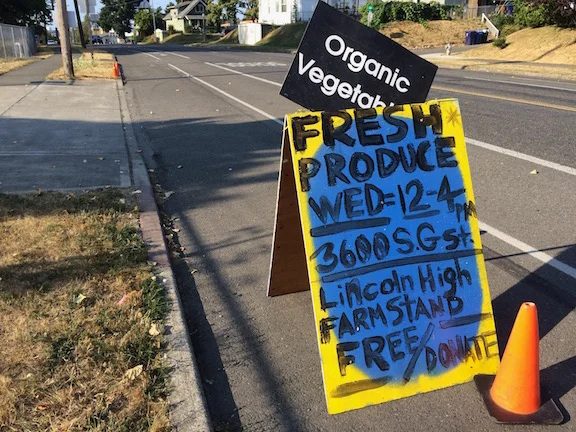 Organic
Vegetab
FRESH
PRODUCE
WED=12-4PM
3600 S.G st.
Lincoln High
FARMSTAND
FREE/DONATE